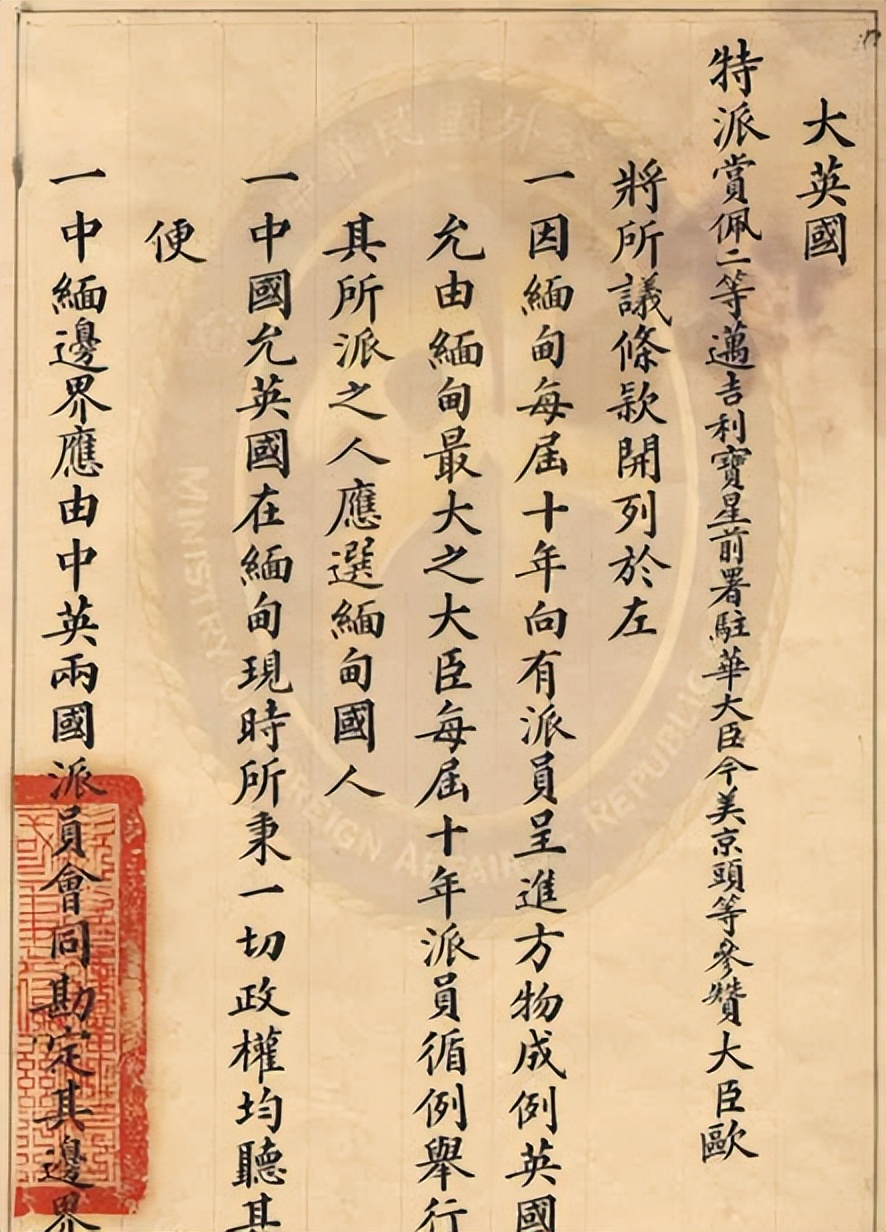 大英國
特派賞佩二等邁吉利寶星前署駐華大臣今美京頭等參贊大臣歐
將所議條款開列於左
一因緬甸每屆十年向有派員呈進方物成例英國
允由緬甸最大之大臣每屆十年派員循例舉行
其所派之人應選緬甸國人
一中國允英國在緬甸現時所秉一切政權均聽其
便
一中緬邊界應由中英兩國派員會同勘定其邊界
MINISTRY O REIGN AFFAIRS REPUBLIC